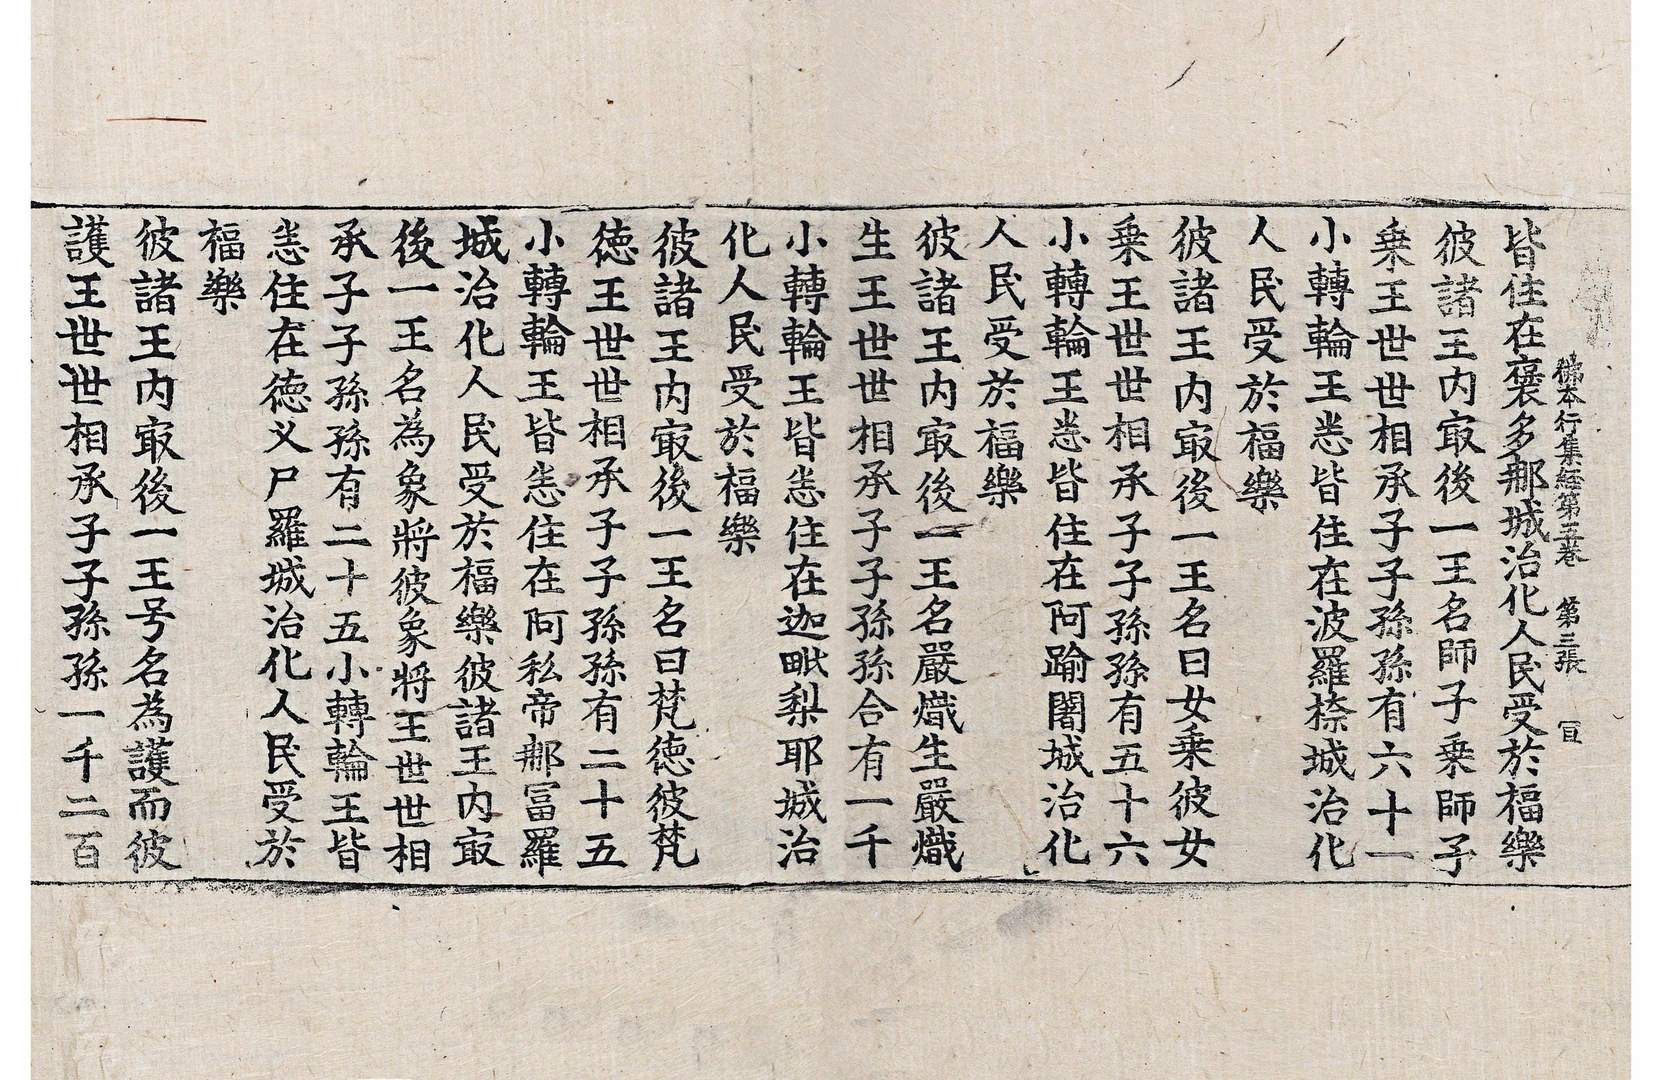 佛本行集經第五卷 第三張 宣
皆住在褒多那城治化人民受於福樂
彼諸王内㝡後一王名師子乗師子
乗王世世相承子子孫孫有六十一
小轉輪王悉皆住在波羅㮈城治化
人民受於福樂
彼諸王内㝡後一王名曰女乗彼女
乗王世世相承子子孫孫有五十六
小轉輪王悉皆住在阿踰闍城治化
人民受於福樂
彼諸王内㝡後一王名嚴熾生嚴熾
生王世世相承子子孫孫合有一千
小轉輪王皆悉住在迦毗梨耶城治
化人民受於福樂
彼諸王内㝡後一王名曰梵徳彼梵
徳王世世相承子子孫孫有二十五
小轉輪王皆悉住在阿私帝那冨羅
城治化人民受於福樂彼諸王内㝡
後一王名為象將彼象將王世世相
承子子孫孫有二十五小轉輪王皆
悉住在徳义尸羅城治化人民受於
福樂
彼諸王内㝡後一王号名為護而彼
護王世世相承子子孫孫一千二百